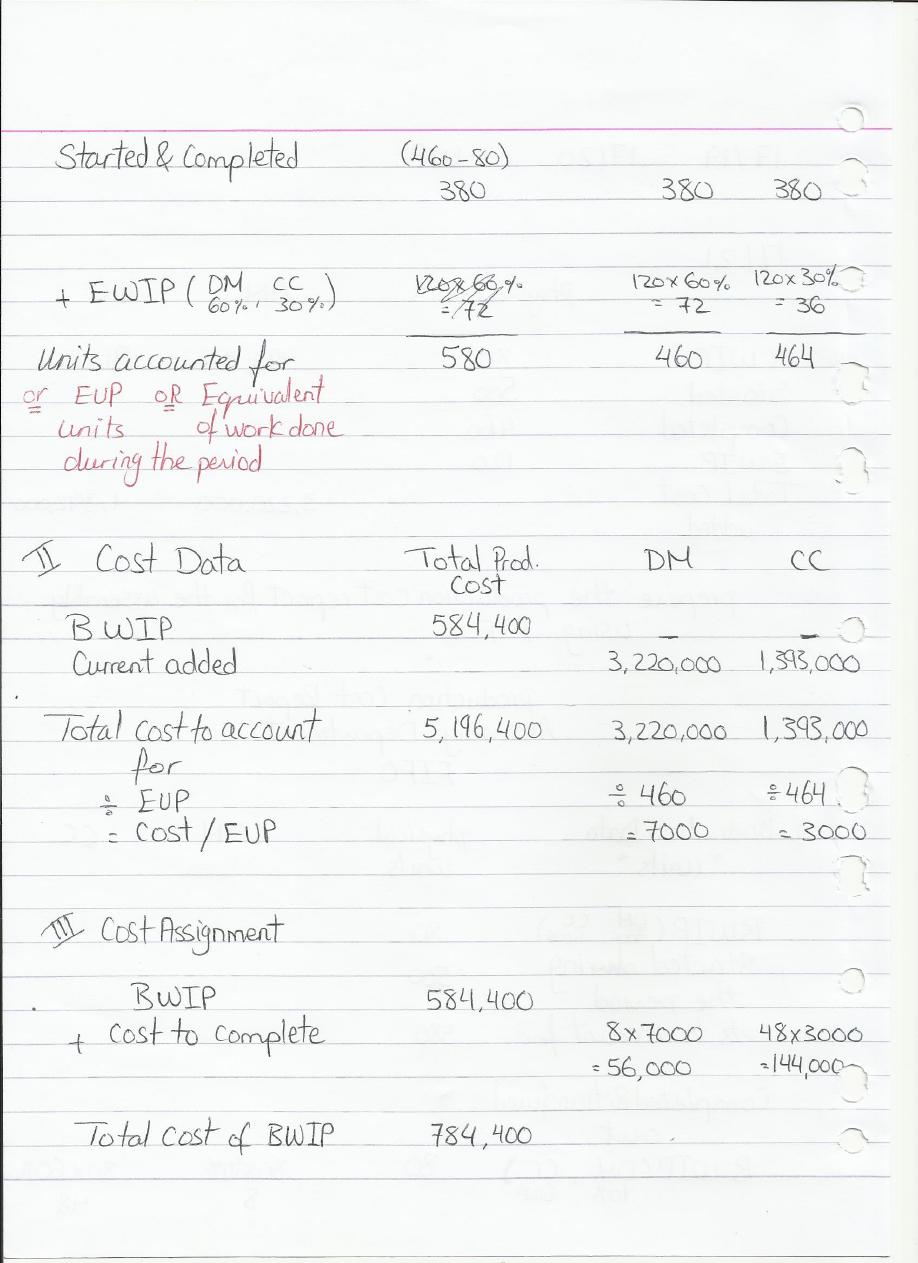 Started & Completed (460-80)
380 380 380
+ EWIP ( DM CC 120x60% 120x60% 120x30%
60%, 30%) = 72 = 72 = 36
Units accounted for 580 460 464
or EUP OR Equivalent
units of work done
during the period
II Cost Data Total Prod. DM CC
Cost
BWIP 584,400 — —
Current added 3,220,000 1,393,000
Total cost to account 5,196,400 3,220,000 1,393,000
for
÷ EUP ÷ 460 ÷ 464
= Cost / EUP = 7000 = 3000
III Cost Assignment
BWIP 584,400
+ Cost to complete 8x7000 48x3000
= 56,000 =144,000
Total Cost of BWIP 784,400